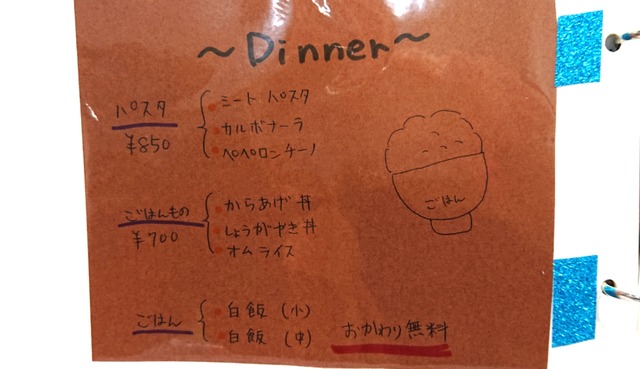 ～Dinner～
パスタ
¥850
ミートパスタ
カルボナーラ
ペペロンチーノ
ごはんもの
¥700
からあげ丼
しょうがやき丼
オムライス
ごはん
ごはん
白飯(小)
白飯(中)
おかわり無料